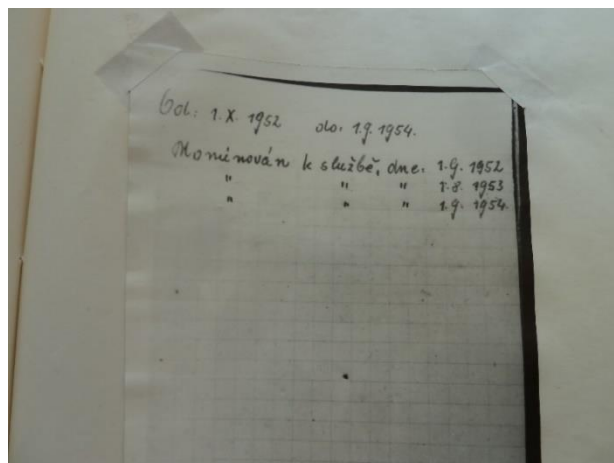 Od: 1.X. 1952 do: 1.9. 1954.
Nominován k službě, dne: 1.9. 1952
" " " 1.8. 1953
" " " 1.9. 1954.